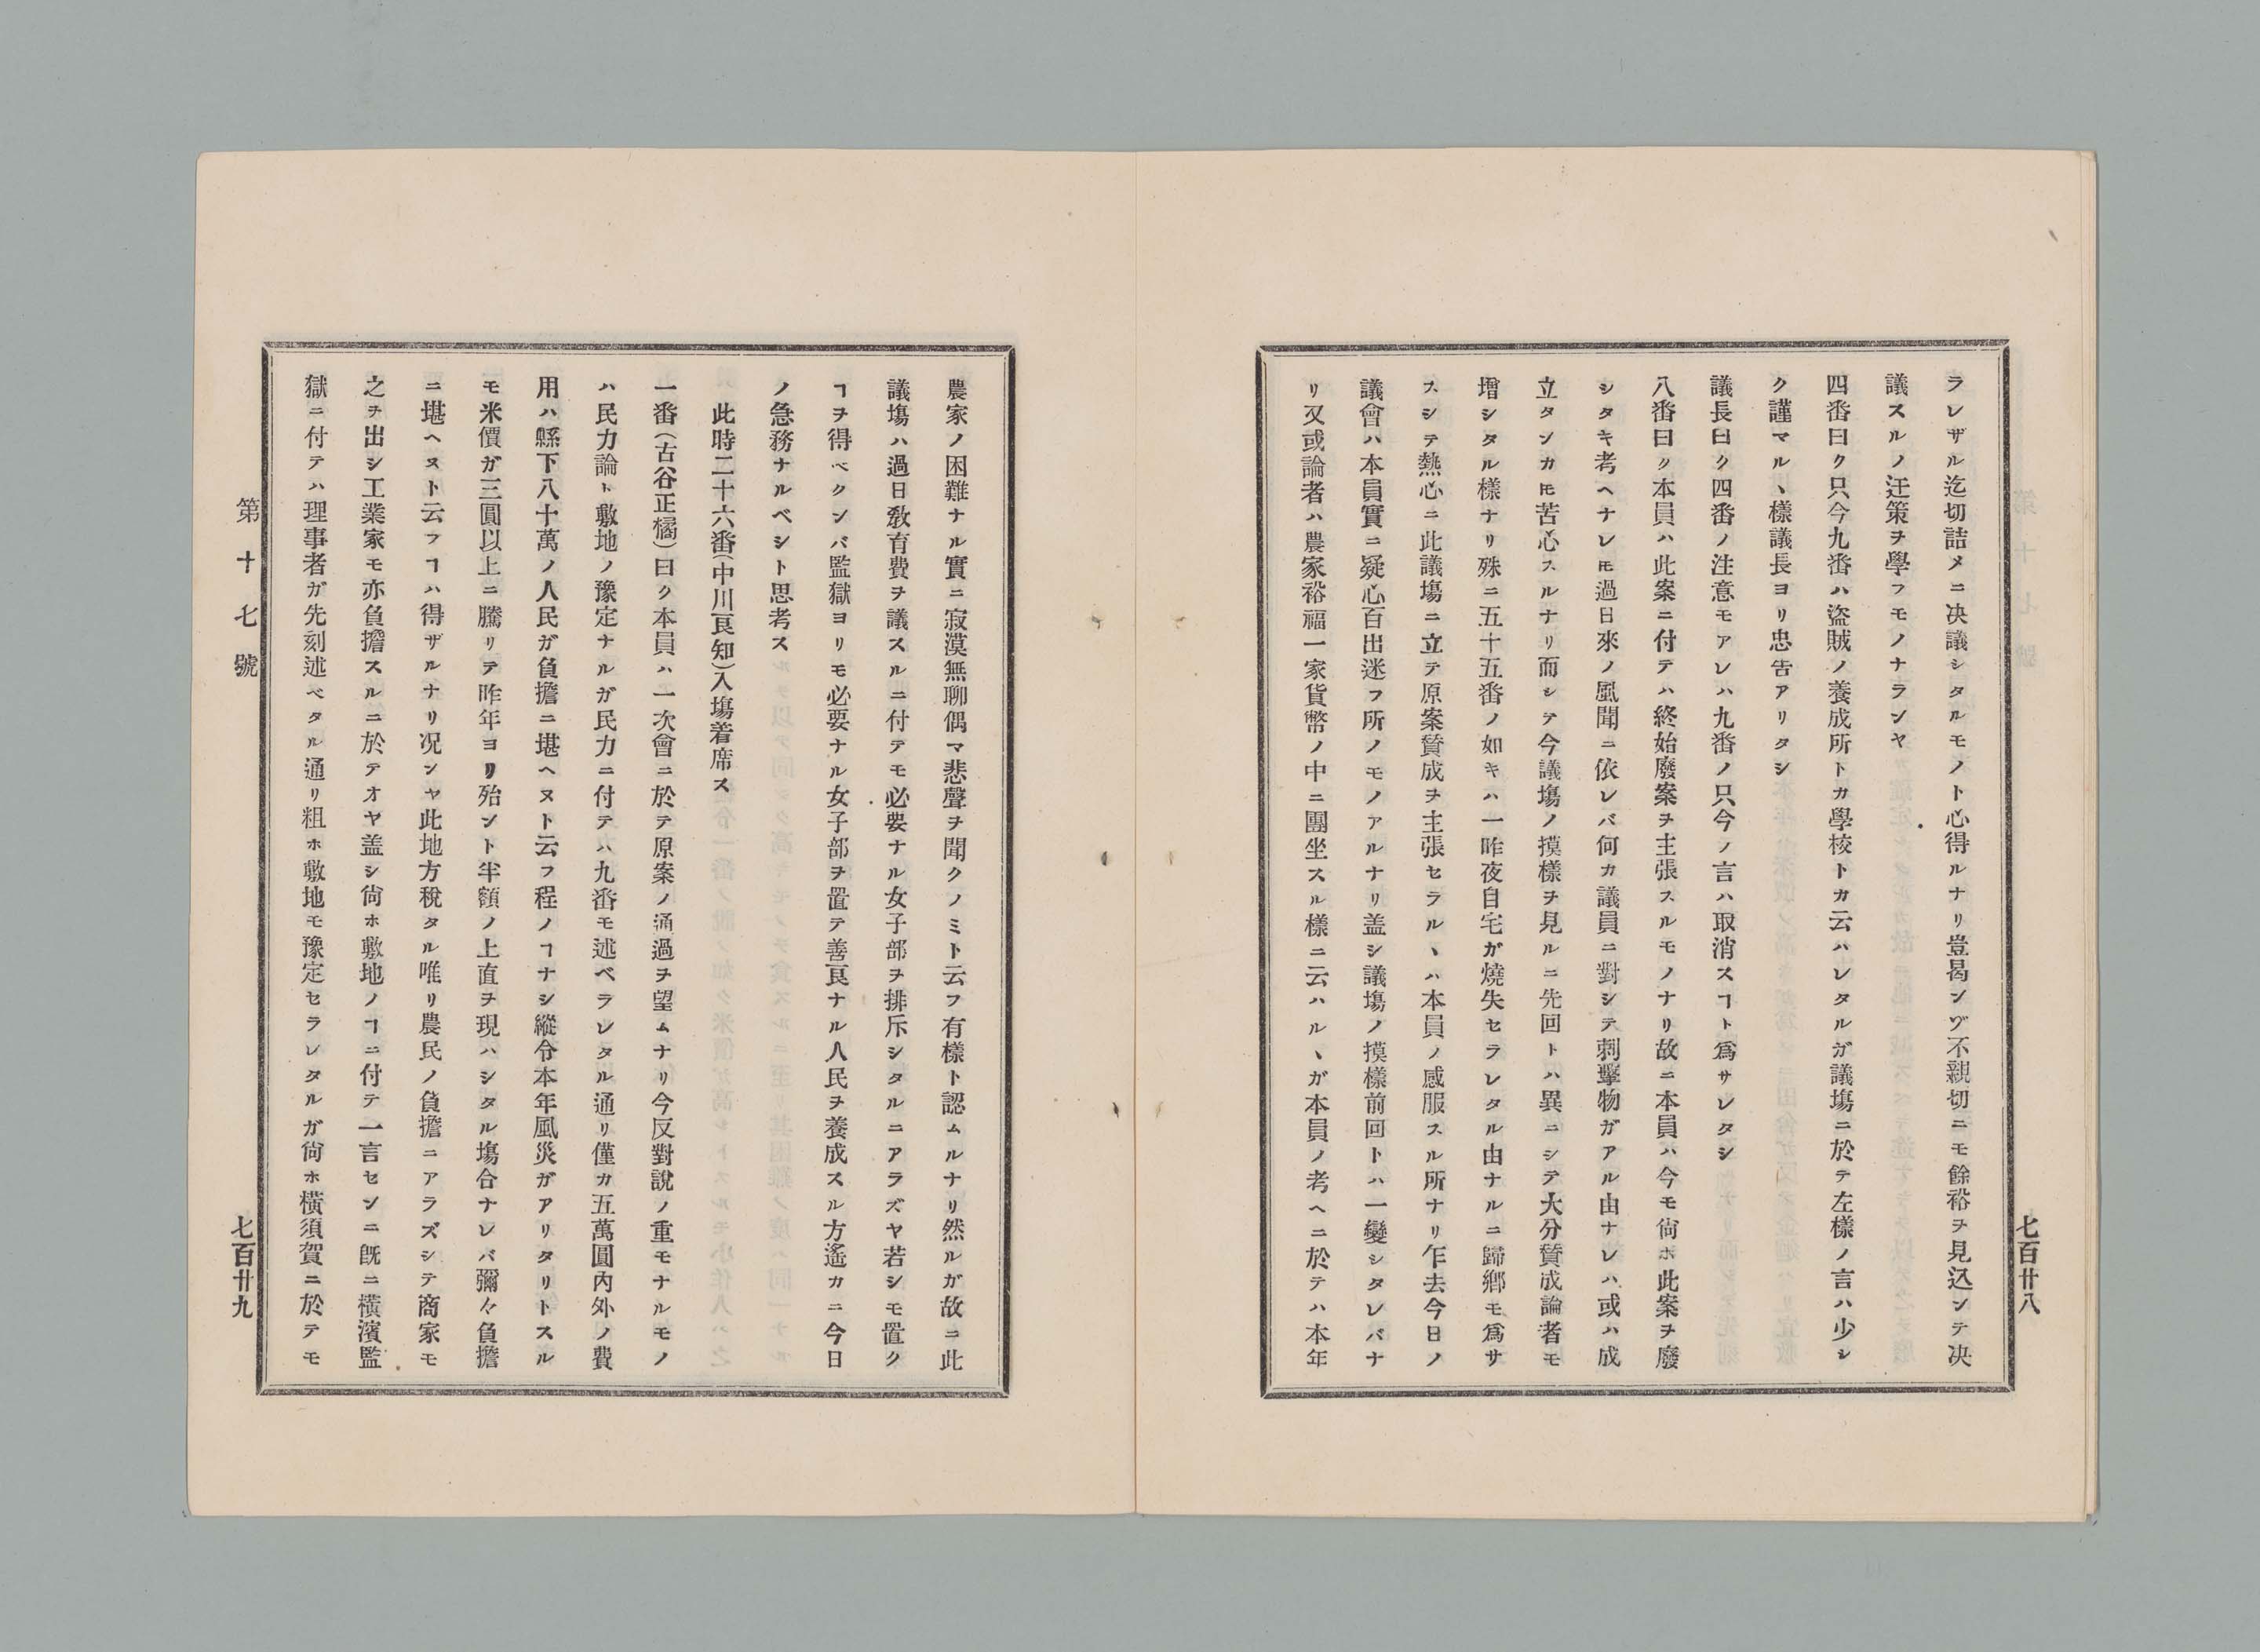 ラレザル迄切詰メニ决議シタルモノト心得ルナリ豈曷ンゾ不親切ニモ餘裕ヲ見込ンテ决
議スルノ迂策ヲ學フモノナランヤ
四番曰ク只今九番ハ盜賊ノ養成所トカ學校トカ云ハレタルガ議塲ニ於テ左樣ノ言ハ少シ
ク謹マル丶樣議長ヨリ忠告アリタシ
議長曰ク四番ノ注意モアレハ九番ノ只今ノ言ハ取消スヿト爲サレタシ
八番曰ク本員ハ此案ニ付テハ終始廢案ヲ主張スルモノナリ故ニ本員ハ今モ尙ホ此案ヲ廢
シタキ考ヘナレ𪜈過日來ノ風聞ニ依レバ何カ議員ニ對シテ刺擊物ガアル由ナレハ或ハ成
立タンカ𪜈苦心スルナリ而シテ今議塲ノ摸樣ヲ見ルニ先回トハ異ニシテ大分賛成論者モ
增シタル樣ナリ殊ニ五十五番ノ如キハ一昨夜自宅ガ燒失セラレタル由ナルニ歸鄕モ爲サ
スシテ熱心ニ此議塲ニ立テ原案賛成ヲ主張セラル丶ハ本員ノ感服スル所ナリ乍去今日ノ
議會ハ本員實ニ疑心百出迷フ所ノモノアルナリ盖シ議塲ノ摸樣前回トハ一變シタレバナ
リ又或論者ハ農家裕福一家貨幣ノ中ニ團坐スル樣ニ云ハル丶ガ本員ノ考ヘニ於テハ本年
七百廿八
農家ノ困難ナル實ニ寂漠無聊偶マ悲聲ヲ聞クノミト云フ有樣ト認ムルナリ然ルガ故ニ此
議塲ハ過日敎育費ヲ議スルニ付テモ必要ナル女子部ヲ排斥シタルニアラズヤ若シモ置ク
ヿヲ得ベクンバ監獄ヨリモ必要ナル女子部ヲ置テ善良ナル人民ヲ養成スル方遙カニ今日
ノ急務ナルベシト思考ス
此時二十六番(中川良知)入塲着席ス
一番(古谷正橘)曰ク本員ハ一次會ニ於テ原案ノ通過ヲ望ムナリ今反對說ノ重モナルモノ
ハ民力論ト敷地ノ豫定ナルガ民力ニ付テハ九番モ述ベラレタル通リ僅カ五萬圓內外ノ費
用ハ縣下八十萬ノ人民ガ負擔ニ堪ヘヌト云フ程ノヿナシ縱令本年風災ガアリタリトスル
モ米價ガ三圓以上ニ騰リテ昨年ヨリ殆ント半額ノ上直ヲ現ハシタル塲合ナレバ彌々負擔
ニ堪ヘヌト云フヿハ得ザルナリ况ンヤ此地方稅タル唯リ農民ノ負擔ニアラズシテ商家モ
之ヲ出シ工業家モ亦負擔スルニ於テオヤ盖シ尙ホ敷地ノヿニ付テ一言センニ旣ニ橫濱監
獄ニ付テハ理事者ガ先刻述ベタル通リ粗ホ敷地モ豫定セラレタルガ尙ホ橫須賀ニ於テモ
第十七號
七百廿九